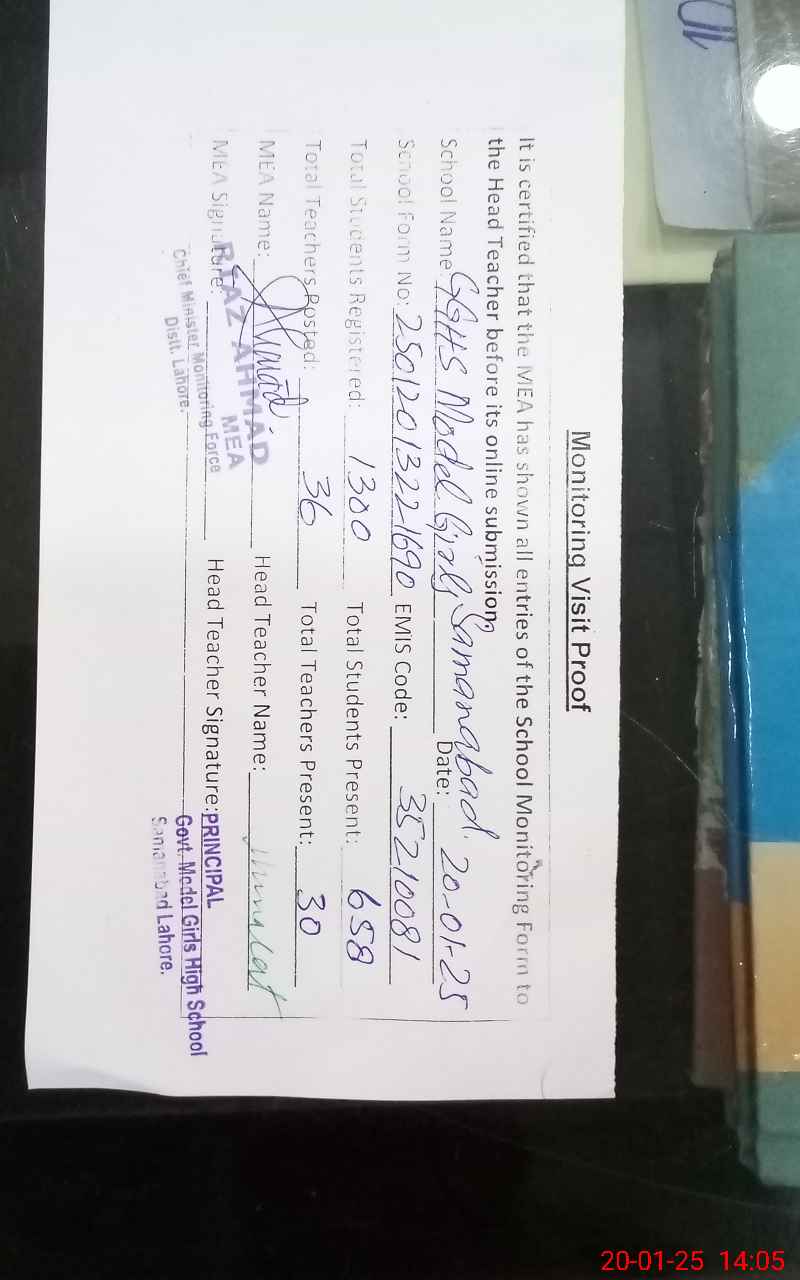 Monitoring Visit Proof
It is certified that the MEA has shown all entries of the School Monitoring Form to
the Head Teacher before its online submission
School Name GGHS Model Girls Samanabad. Date: 20-01-25
School Form No: 2501201322-1690 EMIS Code: 35210081
Total Students Registered: 1300 Total Students Present: 658
Total Teachers Posted: 36 Total Teachers Present: 30
MEA Name: Ahmad Head Teacher Name:
MEA Signature: Head Teacher Signature:
RIAZ AHMAD
MEA
Chief Minister Monitoring Force
Distt. Lahore.
PRINCIPAL
Govt. Model Girls High School
Samanabad Lahore.
20-01-25 14:05